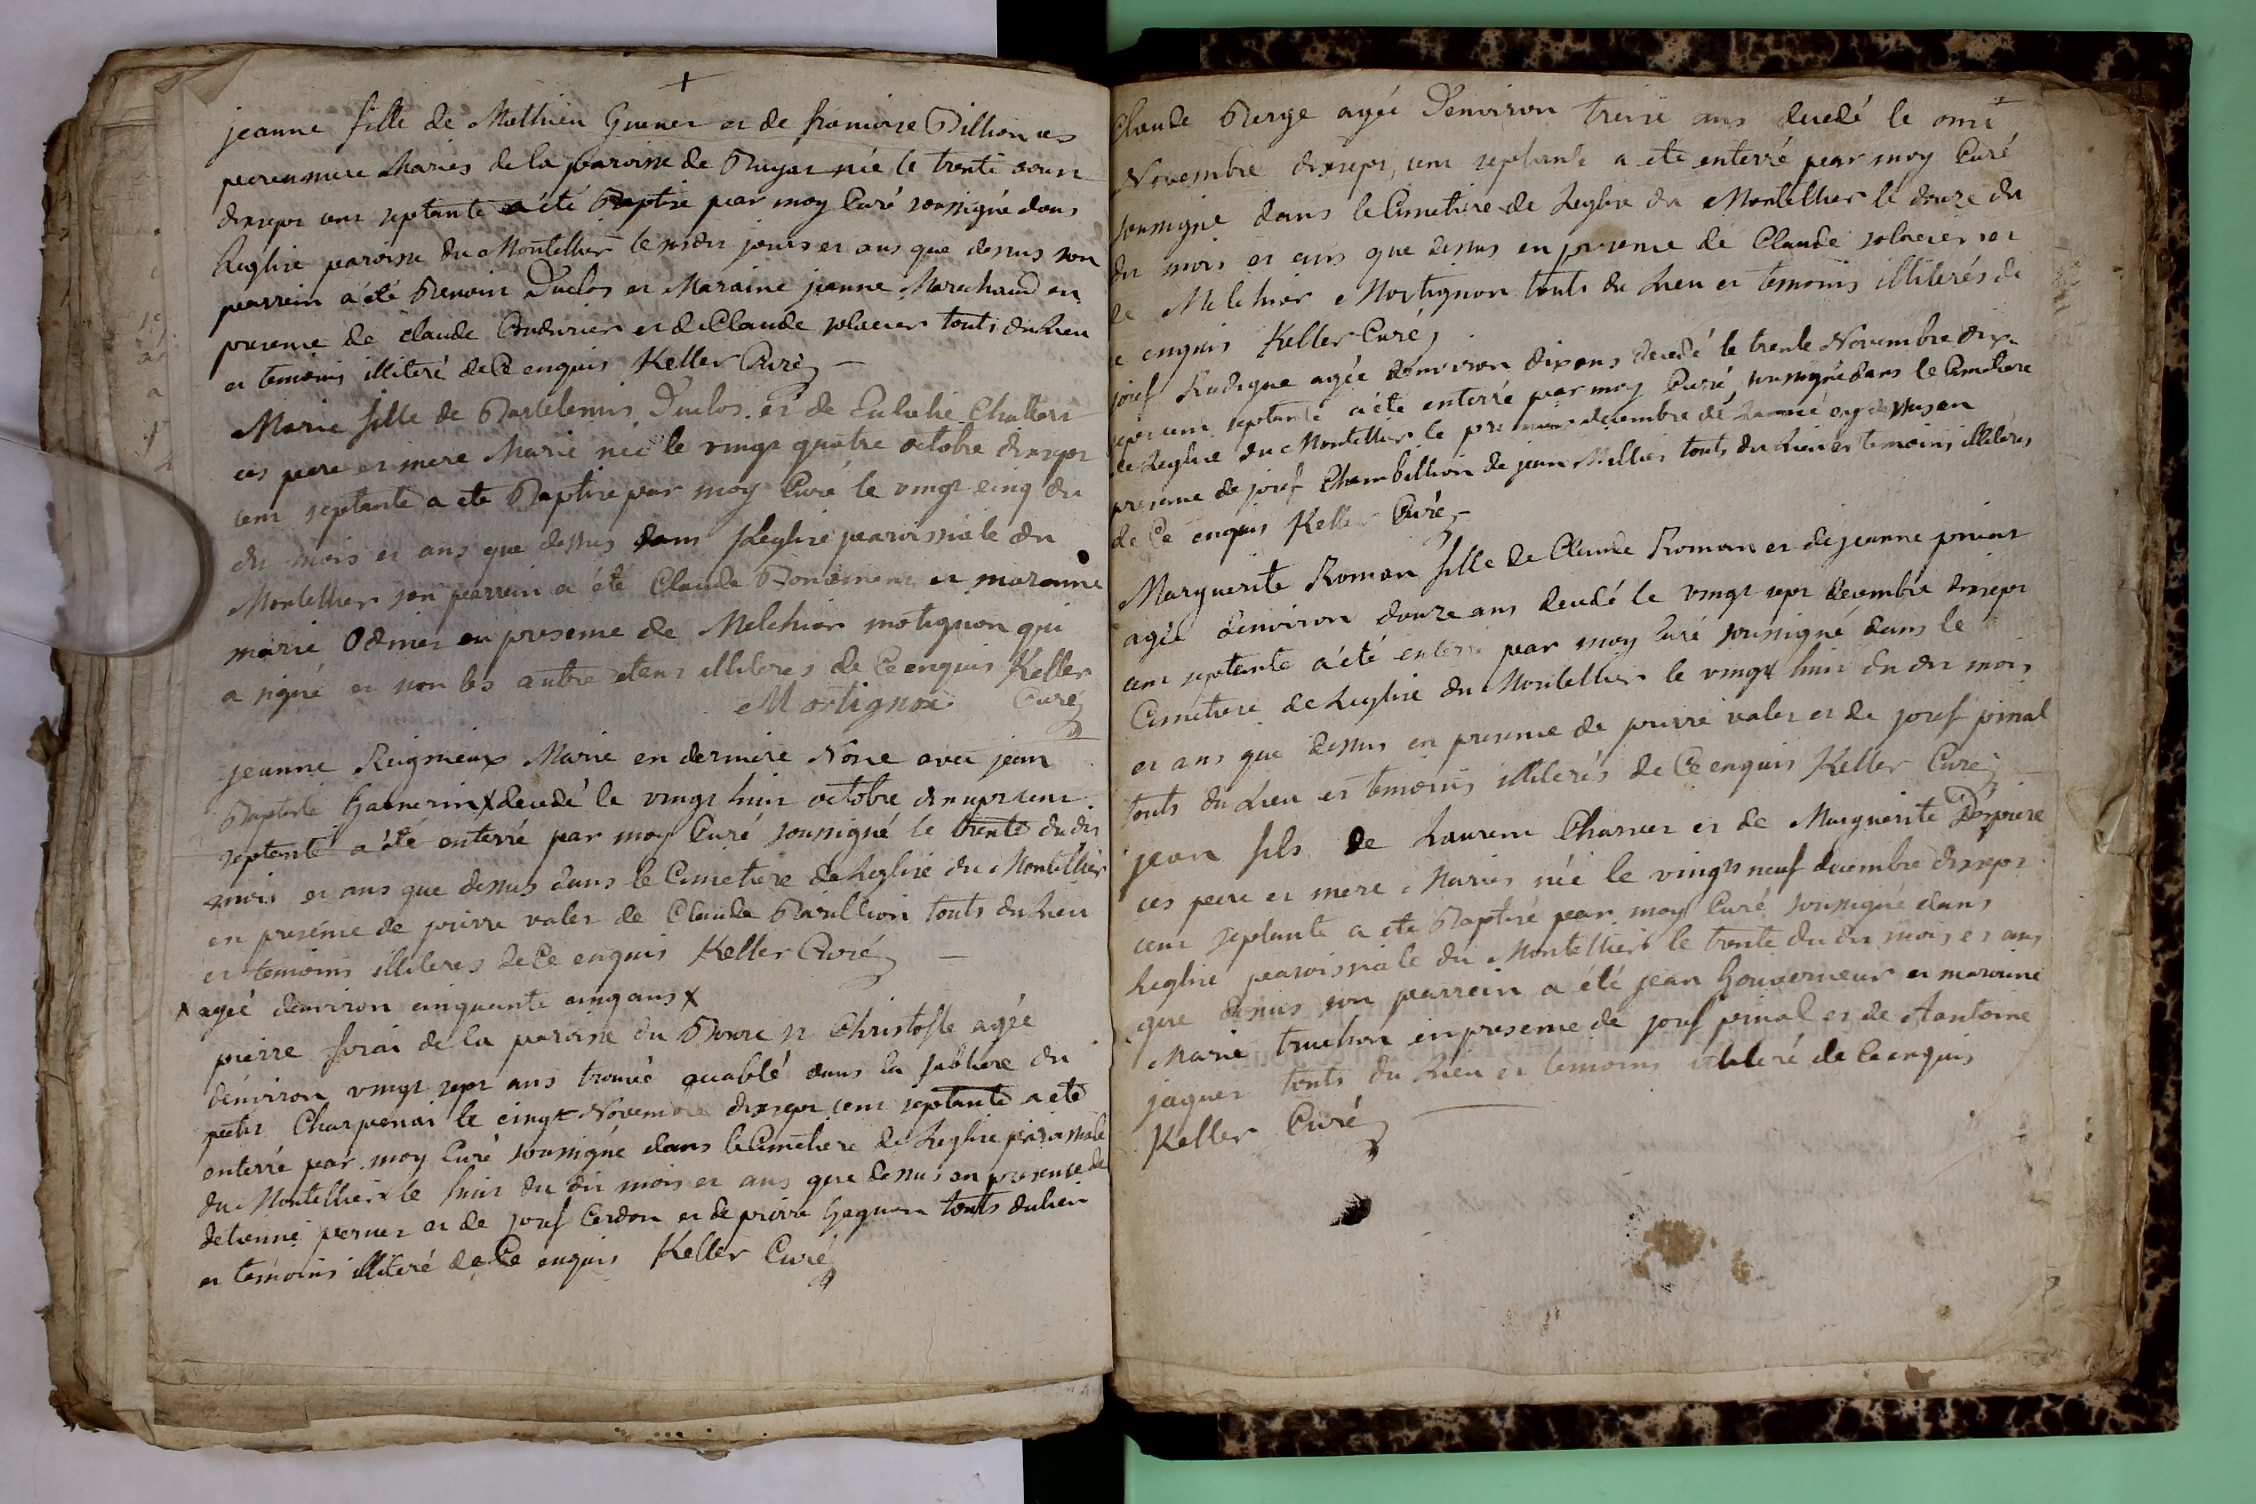 jeanne fille de Mathieu Grener et de francoise Billion ces
pere et mere Maries de la paroisse de Rugas née le trente aoust
dixsept cent septante a été Baptise par moy Curé soussigné dans
Leglise paroisse du Montellier le susdit jours et ans que dessus son
parrein a été Benoit Duclos et Maraine jeanne Marechand en
presence de claude et de Claude touts du Lieu
et temoins illiteré de Ce enquis Keller Curé
Marie fille de Bartelemis Duclos et de Eulalie
ces pere et mere Marié née le vingt quatre octobre dixsept
cent septante a ete Baptise par moy Curé le vingt cinq du
dit mois et ans que dessus dans Leglise paroissiale du
Montellier son parrein a été Claude et maraine
marie Odinet en presence de Melchior motignon qui
a signé et non les autre etant illiteres de Ce enquis Keller
Mortignon Curé
jeanne Reignieux Marie en derniere Nosse avec jean
Baptiste Garnerin x decedé le vingt huit octobre dixsept cent
septante a été enterré par moy Curé soussigné le trente dudit
mois et ans que dessus dans le Cimetiere de Leglise du Montellier
en presence de pierre valet de Claude Barillion touts du Lieu
et temoins illiteres de Ce enquis Keller Curé
x agée denviron cinquante cinq ans x
pierre forai de la paroisse du st Christofle agée
denviron vingt sept ans trouvé acablé dans la sabliere du
petit Charpenai le cinq Novembre dixsept cent septante a ete
enterré par moy Curé soussigné dans le Cimetiere de Leglise paroissiale
du Montellier le huit du dit mois et ans que dessus en presence de
detienne pernet et de josef Cerdon et de pierre Gagnon touts du lieu
et temoins illiteré de Ce enquis Keller Curé
Claude Berge agée Denviron treise ans decedé le onse
Novembre dixsept cent septante a ete enterré par moy Curé
soussigné dans le Cimetiere de Leglise du Montellier le douze du
dit mois et ans que dessus en presence de Claude et
de Melchior Mortignon touts du Lieu et temoins illiterés de
ce enquis Keller Curé
josef Rudigue agée denviron dix ans decedé le trente Novembre dix
sept cent septante a été enterré par moy Curé soussigné dans le Cimetiere
de Leglise du Montellier le premier decembre de Lannée que dessus en
presence de josef Chambillion de jean Millies touts du Lieu et temoins illiteres
de Ce enquis Keller Curé
Marguerite Roman fille de Claude Roman et de jeanne
agée denviron douze ans decedé le vingt sept decembre dixsept
cent septante a été enterré par moy Curé soussigné dans le
Cimetiere de Leglise du Montellier le vingt huit du dit mois
et ans que dessus en presence de pierre valet et de josef pinal
touts du Lieu et temoins illiterés de Ce enquis Keller Curé
jean fils de Laurent Charvet et de Marguerite
ces pere et mere Maries née le vingt neuf decembre dixsept
cent septante a ete Baptisé par moy Curé soussigné dans
Leglise paroissiale du Montellier le trente du dit mois et ans
que dessus son parrein a été jean Gouverneur et maraine
Marie truchon en presence de josef pinal et de Antoine
jaquet touts du Lieu et temoins illiteré de Ce enquis
Keller Curé